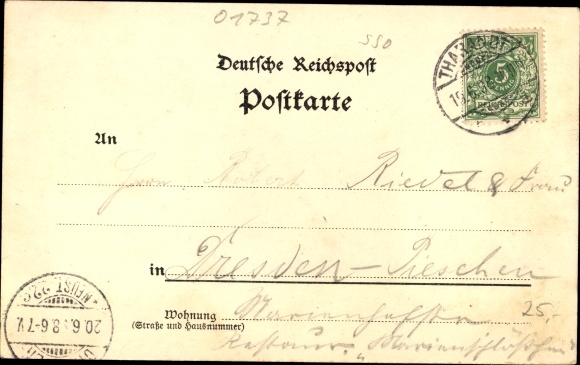 01737
550
Deutsche Reichspost
Postkarte
THARANDT
5
REICHSPOST
An
Herrn Robert Riedel & Frau
in Dresden-Pieschen
Wohnung
(Straße und Hausnummer)
Restaur. "Marienschlößchen"
25,-
20.6. 8.6-7V.